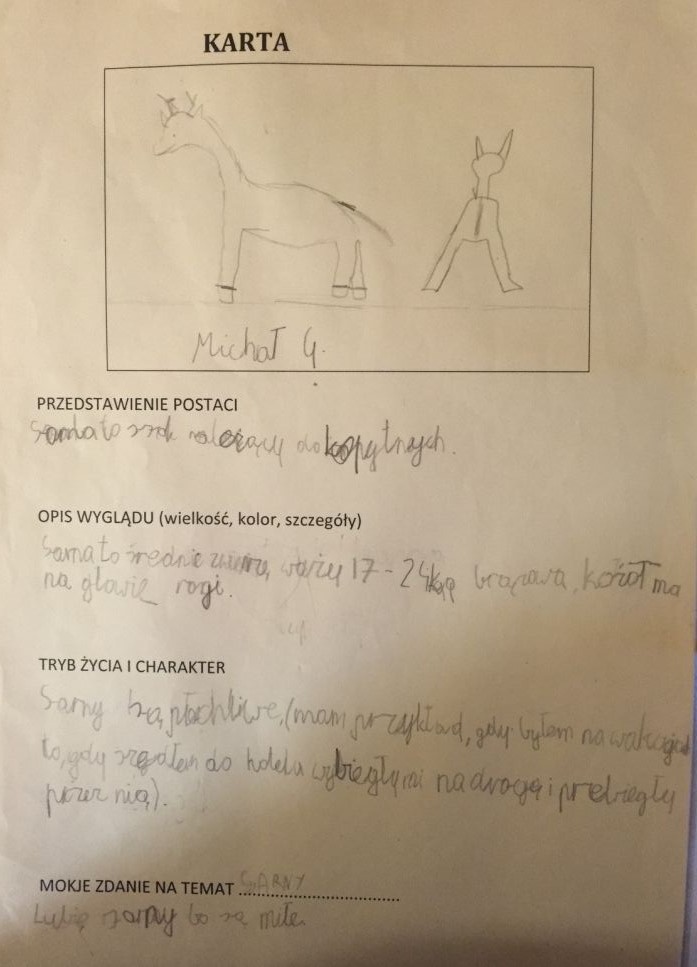 KARTA
Michał G.
PRZEDSTAWIENIE POSTACI
Sarna to ssak należący do kopytnych.
OPIS WYGLĄDU (wielkość, kolor, szczegóły)
Sarna to średnie waży 17-24kg brązowa, kozioł ma
na głowie rogi.
TRYB ŻYCIA I CHARAKTER
Sarny są płochliwe, (mam przykład, gdy byłem na wakacjach
to, gdy szedłem do hotelu wybiegły mi na drogę i przebiegły
przez nią).
MOKJE ZDANIE NA TEMAT SARNY
Lubię sarny bo są miłe.